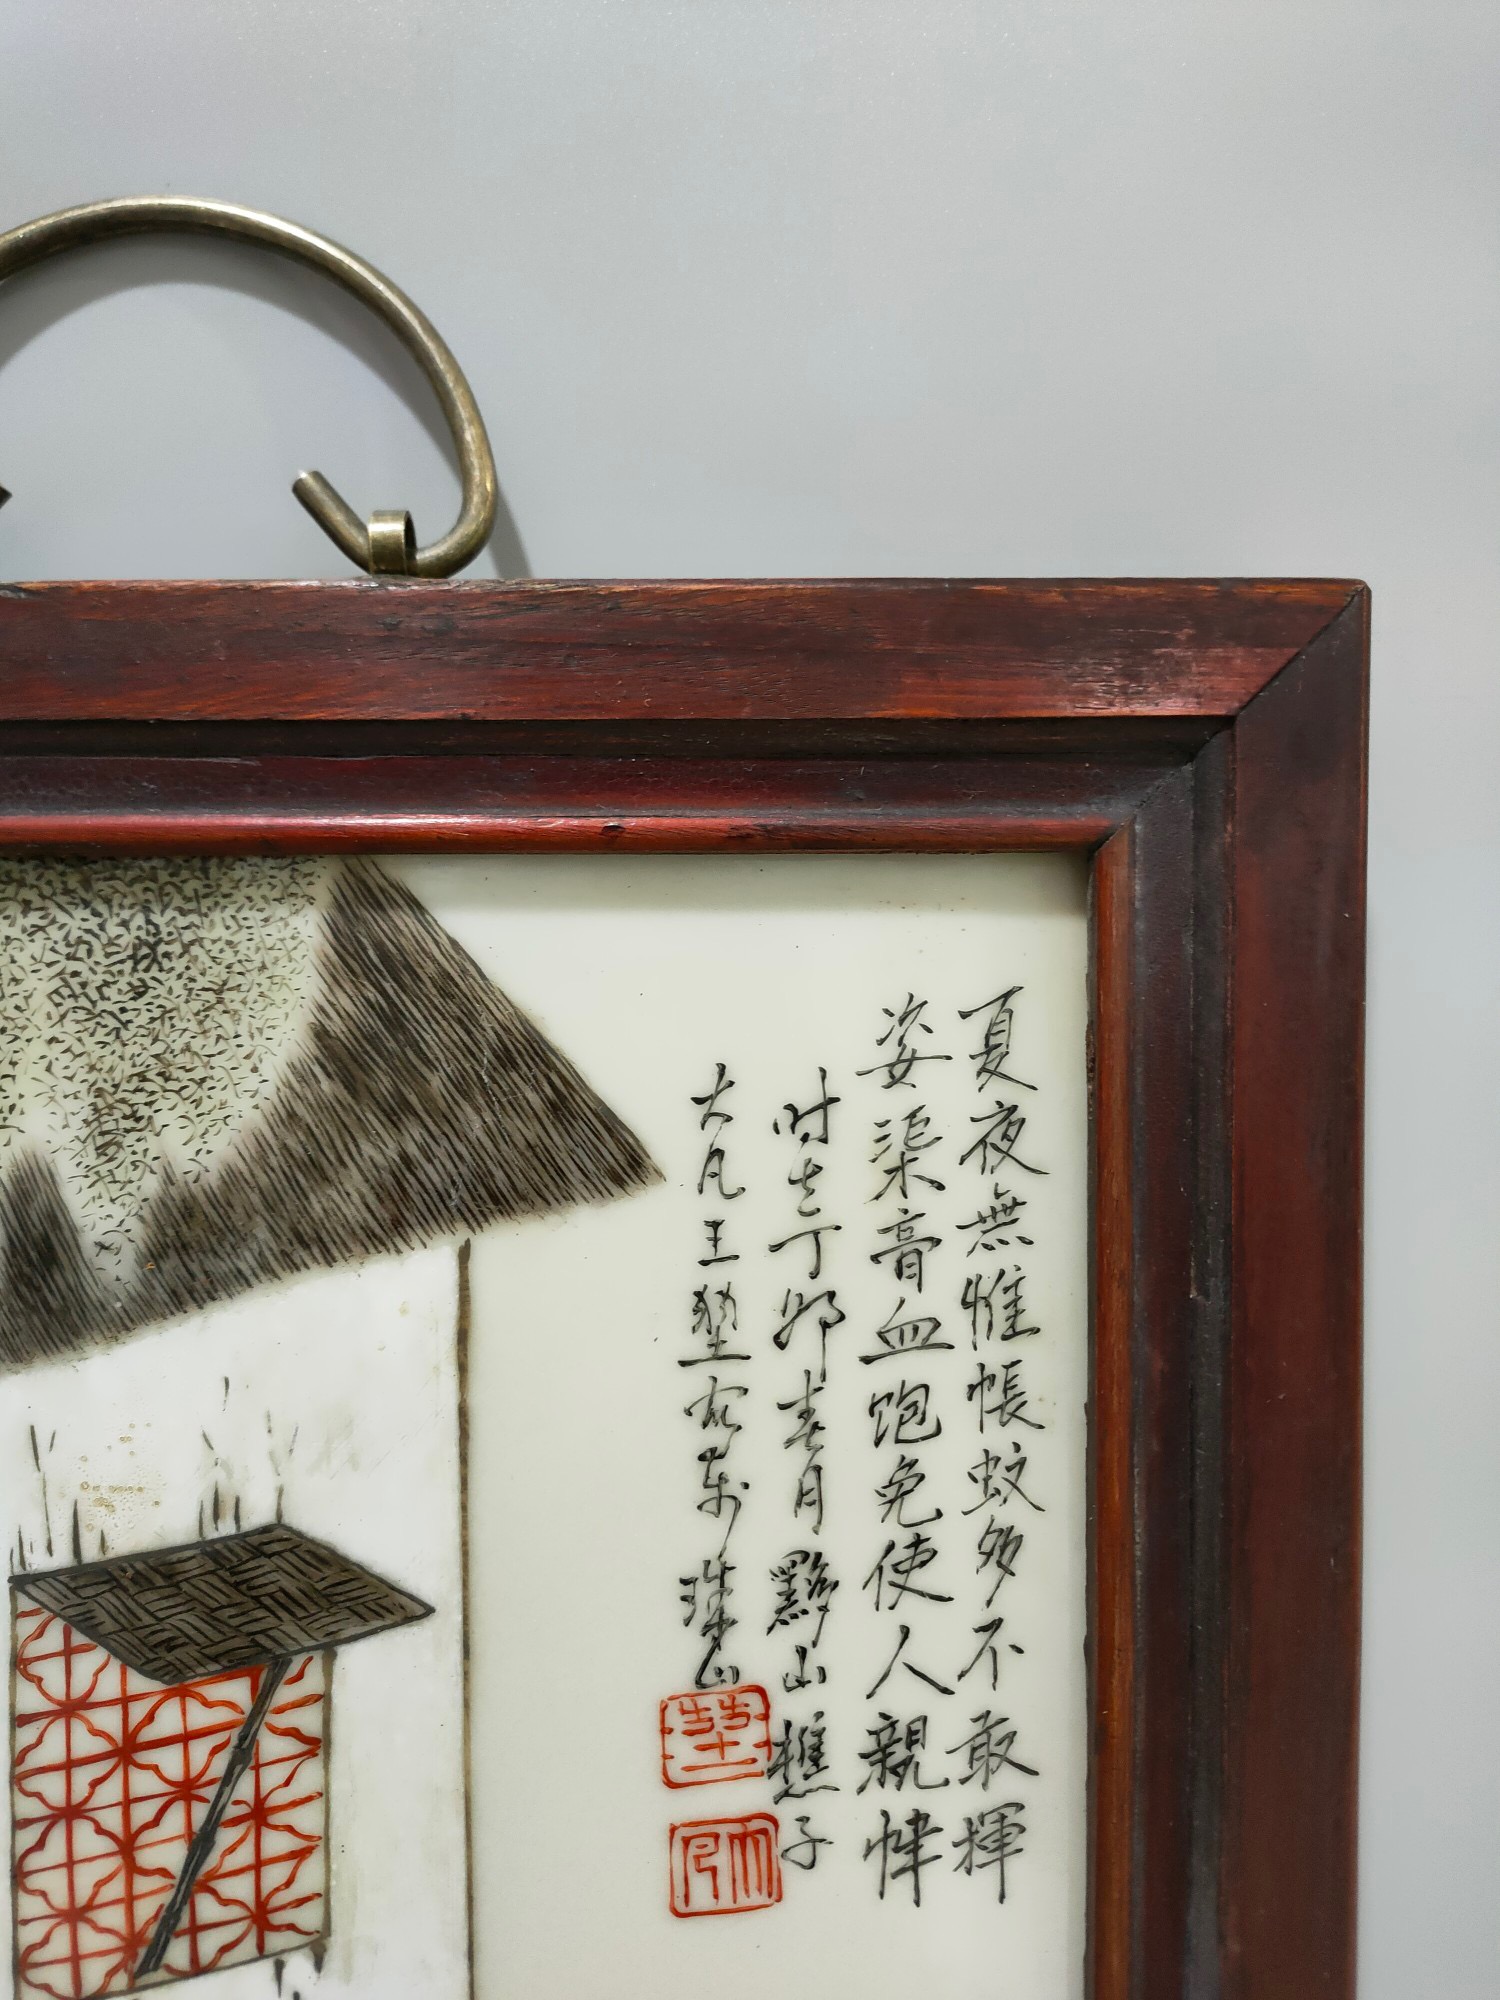 夏夜無帷帳蚊多不敢揮
姿渠膏血飽免使人親幃
時在丁卯春月黟山樵子
大凡王堃寫於珠山